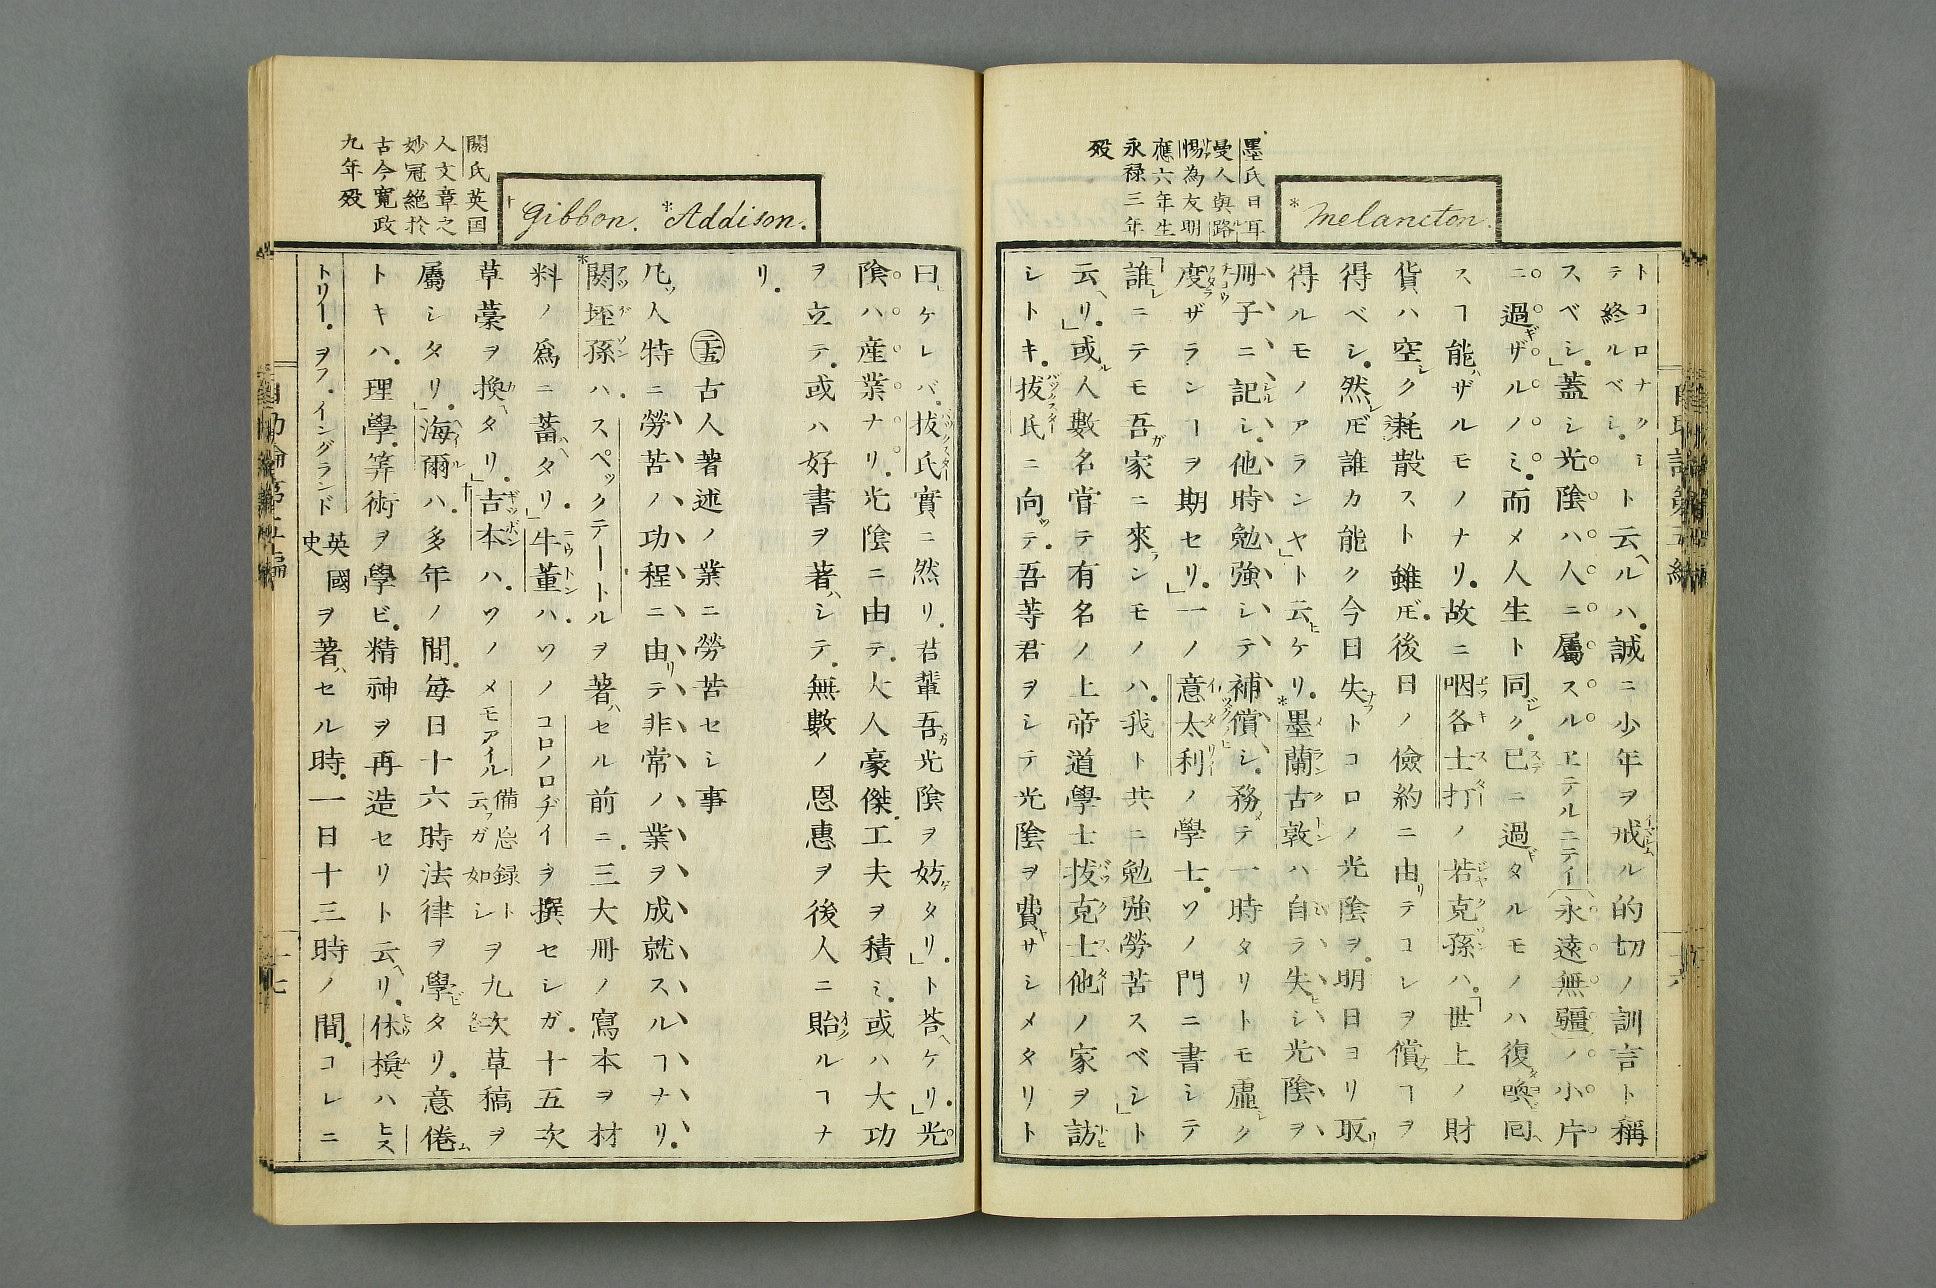 墨氏日耳
曼人與路
惕為友明
應六年生
永祿三年
歿
*Melancton.
トコロナクシ
テ終ルベシ。ト云ルハ。誠ニ少年ヲ戒ル的切ノ訓言ト稱
スベシ」蓋シ光陰ハ人ニ屬スルヱテルニテイ(永遠無疆)ノ小片
ニ過ザルノミ。而メ人生ト同ク。已ニ過タルモノハ復喚回
スヿ能ザルモノナリ。故ニ咽各士打ノ若克孫ハ。「世上ノ財
貨ハ空ク耗散スト雖𪜈。後日ノ儉約ニ由テコレヲ償ヿヲ
得ベシ。然𪜈誰カ能ク今日失トコロノ光陰ヲ。明日ヨリ取
得ルモノアランヤ」ト云ケリ。*墨蘭古敦ハ自ラ失シ光陰ヲ
冊子ニ記シ。他時勉強シテ補償シ。務テ一時タリトモ虛ク
度ザランヿヲ期セリ」一ノ意太利ノ學士。ソノ門ニ書シテ
「誰ニテモ吾家ニ來ンモノハ。我ト共ニ勉強勞苦スベシ」ト
云リ」或人數名嘗テ有名ノ上帝道學士拔克士他ノ家ヲ訪
シトキ。拔氏ニ向テ。吾等君ヲシテ光陰ヲ費サシメタリト
自助論第五編
十七
*Addison.
†Gibbon.
闕氏英国
人文章之
妙冠絶於
古今寬政
九年歿
曰ケレバ。拔氏實ニ然リ。君輩吾光陰ヲ妨タリ。」ト荅ケリ」光
陰ハ産業ナリ。光陰ニ由テ。大人豪傑。工夫ヲ積ミ。或ハ大功
ヲ立テ。或ハ好書ヲ著シテ。無數ノ恩惠ヲ後人ニ貽ルヿナ
リ。
㊁五 古人著述ノ業ニ勞苦セシ事
凡人特ニ勞苦ノ功程ニ由テ非常ノ業ヲ成就スルヿナリ。
*闕垤孫ハ。スペックテートルヲ著セル前ニ。三大冊ノ寫本ヲ材
料ノ爲ニ蓄タリ」牛董ハソノコロノロヂイヲ撰セシガ。十五次
草藁ヲ換タリ」†吉本ハ。ソノメモアイル備忘錄ト云ガ如シヲ九次草稿ヲ
屬シタリ」海爾ハ。多年ノ間。每日十六時法律ヲ學タリ。意倦
トキハ。理學等術ヲ學ビ。精神ヲ再造セリト云リ。休模ハヒス
トリー。ヲフ.イングランド英國史ヲ著セル時。一日十三時ノ間。コレニ